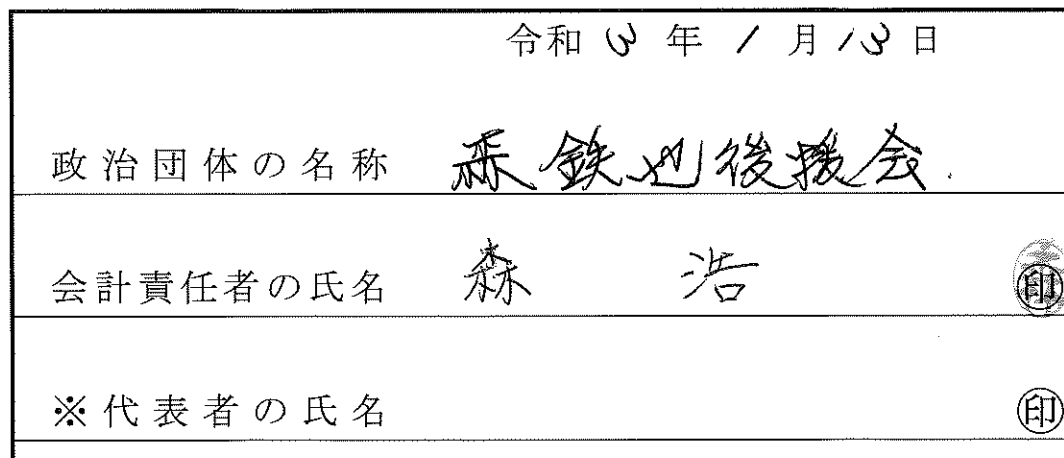 令和3年1月13日
政治団体の名称 森鉄也後援会
会計責任者の氏名 森 浩 ㊞
※代表者の氏名 ㊞